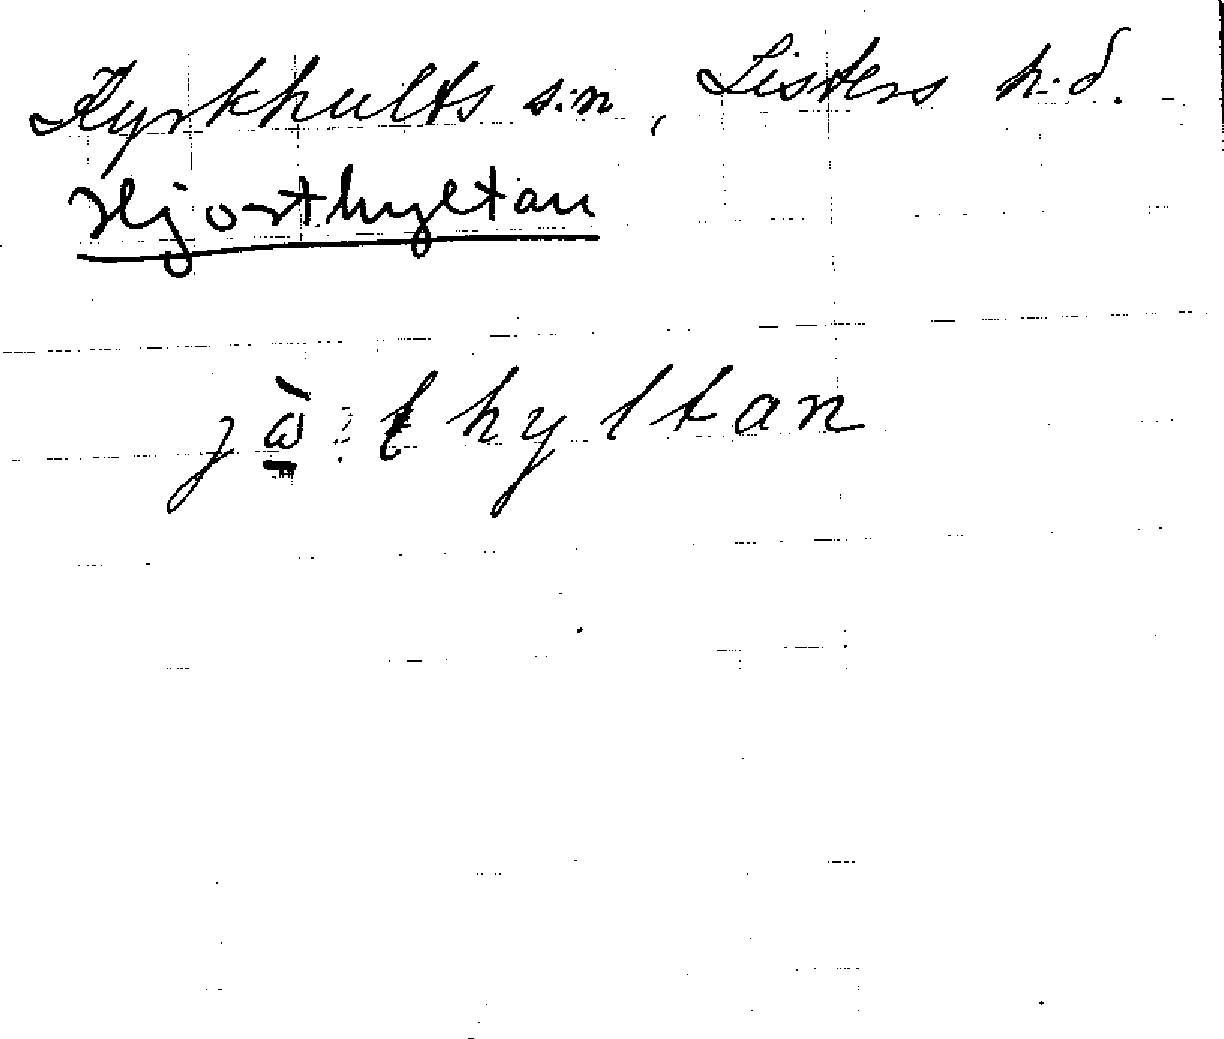 Kyrkhults s:n, Listers h:d.
Hjorthyltan
jὼ̲:thyltan